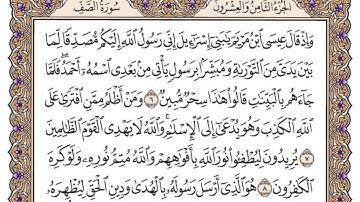 الجزء الثامن والعشرون سورة الصف
وَإِذْ قَالَ عِيسَى ٱبْنُ مَرْيَمَ يَٰبَنِىٓ إِسْرَٰٓءِيلَ إِنِّى رَسُولُ ٱللَّهِ إِلَيْكُم مُّصَدِّقًا لِّمَا
بَيْنَ يَدَىَّ مِنَ ٱلتَّوْرَىٰةِ وَمُبَشِّرًۢا بِرَسُولٍ يَأْتِى مِنۢ بَعْدِى ٱسْمُهُۥٓ أَحْمَدُ ۖ فَلَمَّا
جَآءَهُم بِٱلْبَيِّنَٰتِ قَالُوا۟ هَٰذَا سِحْرٌ مُّبِينٌ ٦ وَمَنْ أَظْلَمُ مِمَّنِ ٱفْتَرَىٰ عَلَى
ٱللَّهِ ٱلْكَذِبَ وَهُوَ يُدْعَىٰٓ إِلَى ٱلْإِسْلَٰمِ ۚ وَٱللَّهُ لَا يَهْدِى ٱلْقَوْمَ ٱلظَّٰلِمِينَ
٧ يُرِيدُونَ لِيُطْفِـُٔوا۟ نُورَ ٱللَّهِ بِأَفْوَٰهِهِمْ وَٱللَّهُ مُتِمُّ نُورِهِۦ وَلَوْ كَرِهَ
ٱلْكَٰفِرُونَ ٨ هُوَ ٱلَّذِىٓ أَرْسَلَ رَسُولَهُۥ بِٱلْهُدَىٰ وَدِينِ ٱلْحَقِّ لِيُظْهِرَهُۥ